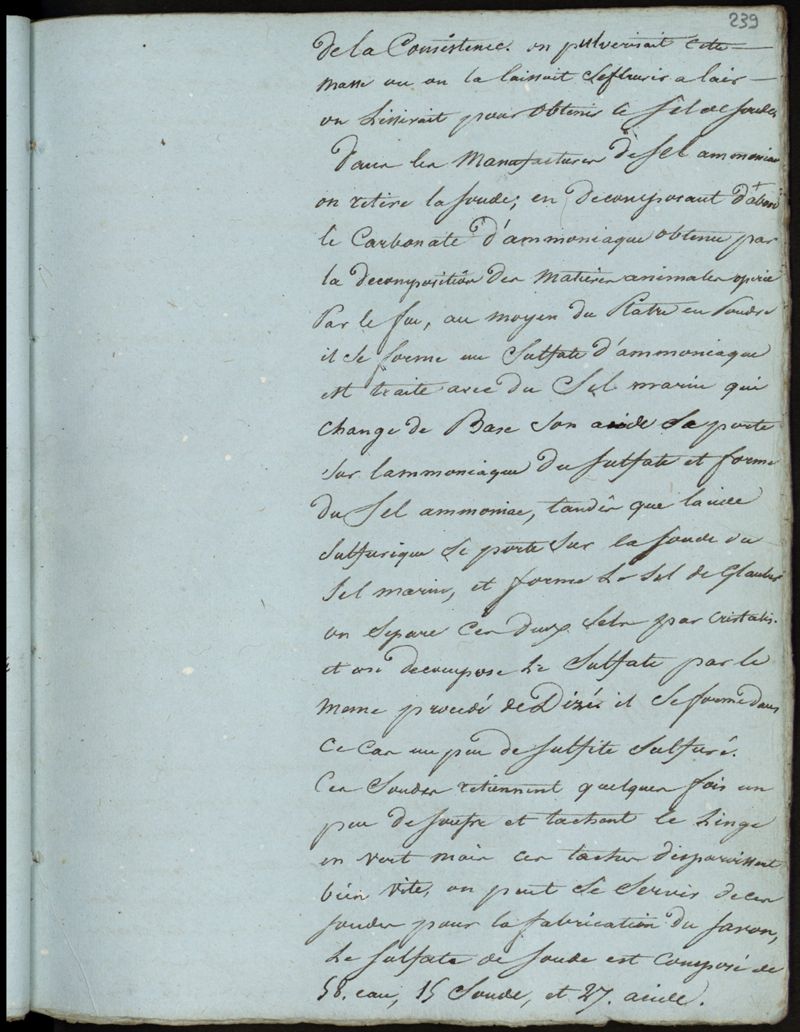 239
de la Consistence. on pulverisait cette
masse ou on la laissait s'efleurir a lair
on Lissivait pour obtenir le Sel de soude
Dans les Manufactures de sel ammoniac
on retire la soude; en decomposant d'abord
le Carbonate d'ammoniaque obtenu par
la decomposition des matieres animales operée
Par le feu, au moyen du Platre en Poudre
il se forme un Sulfate d'ammoniaque
est traité avec du Sel marin qui
change de Base son acide se porte
sur lammoniaque du sulfate et forme
du Sel ammoniac, tandis que lacide
Sulfurique se porte sur la soude du
sel marin, et forme Le Sel de Glauber
on separe ces deux sels par cristalis.
et on decompose Le Sulfate par le
meme procédé de Dizés il se forme dans
ce cas un peu de sulfite sulfuré.
Ces soudes retiennent quelques fois un
peu de soufre et tachent le Linge
en vert mais ces taches disparoissent
bien vite, on peut se servir de ces
soudes pour la fabrication du savon,
Le sulfate de soude est composé de
58. eau, 15 Soude, et 27. acide.